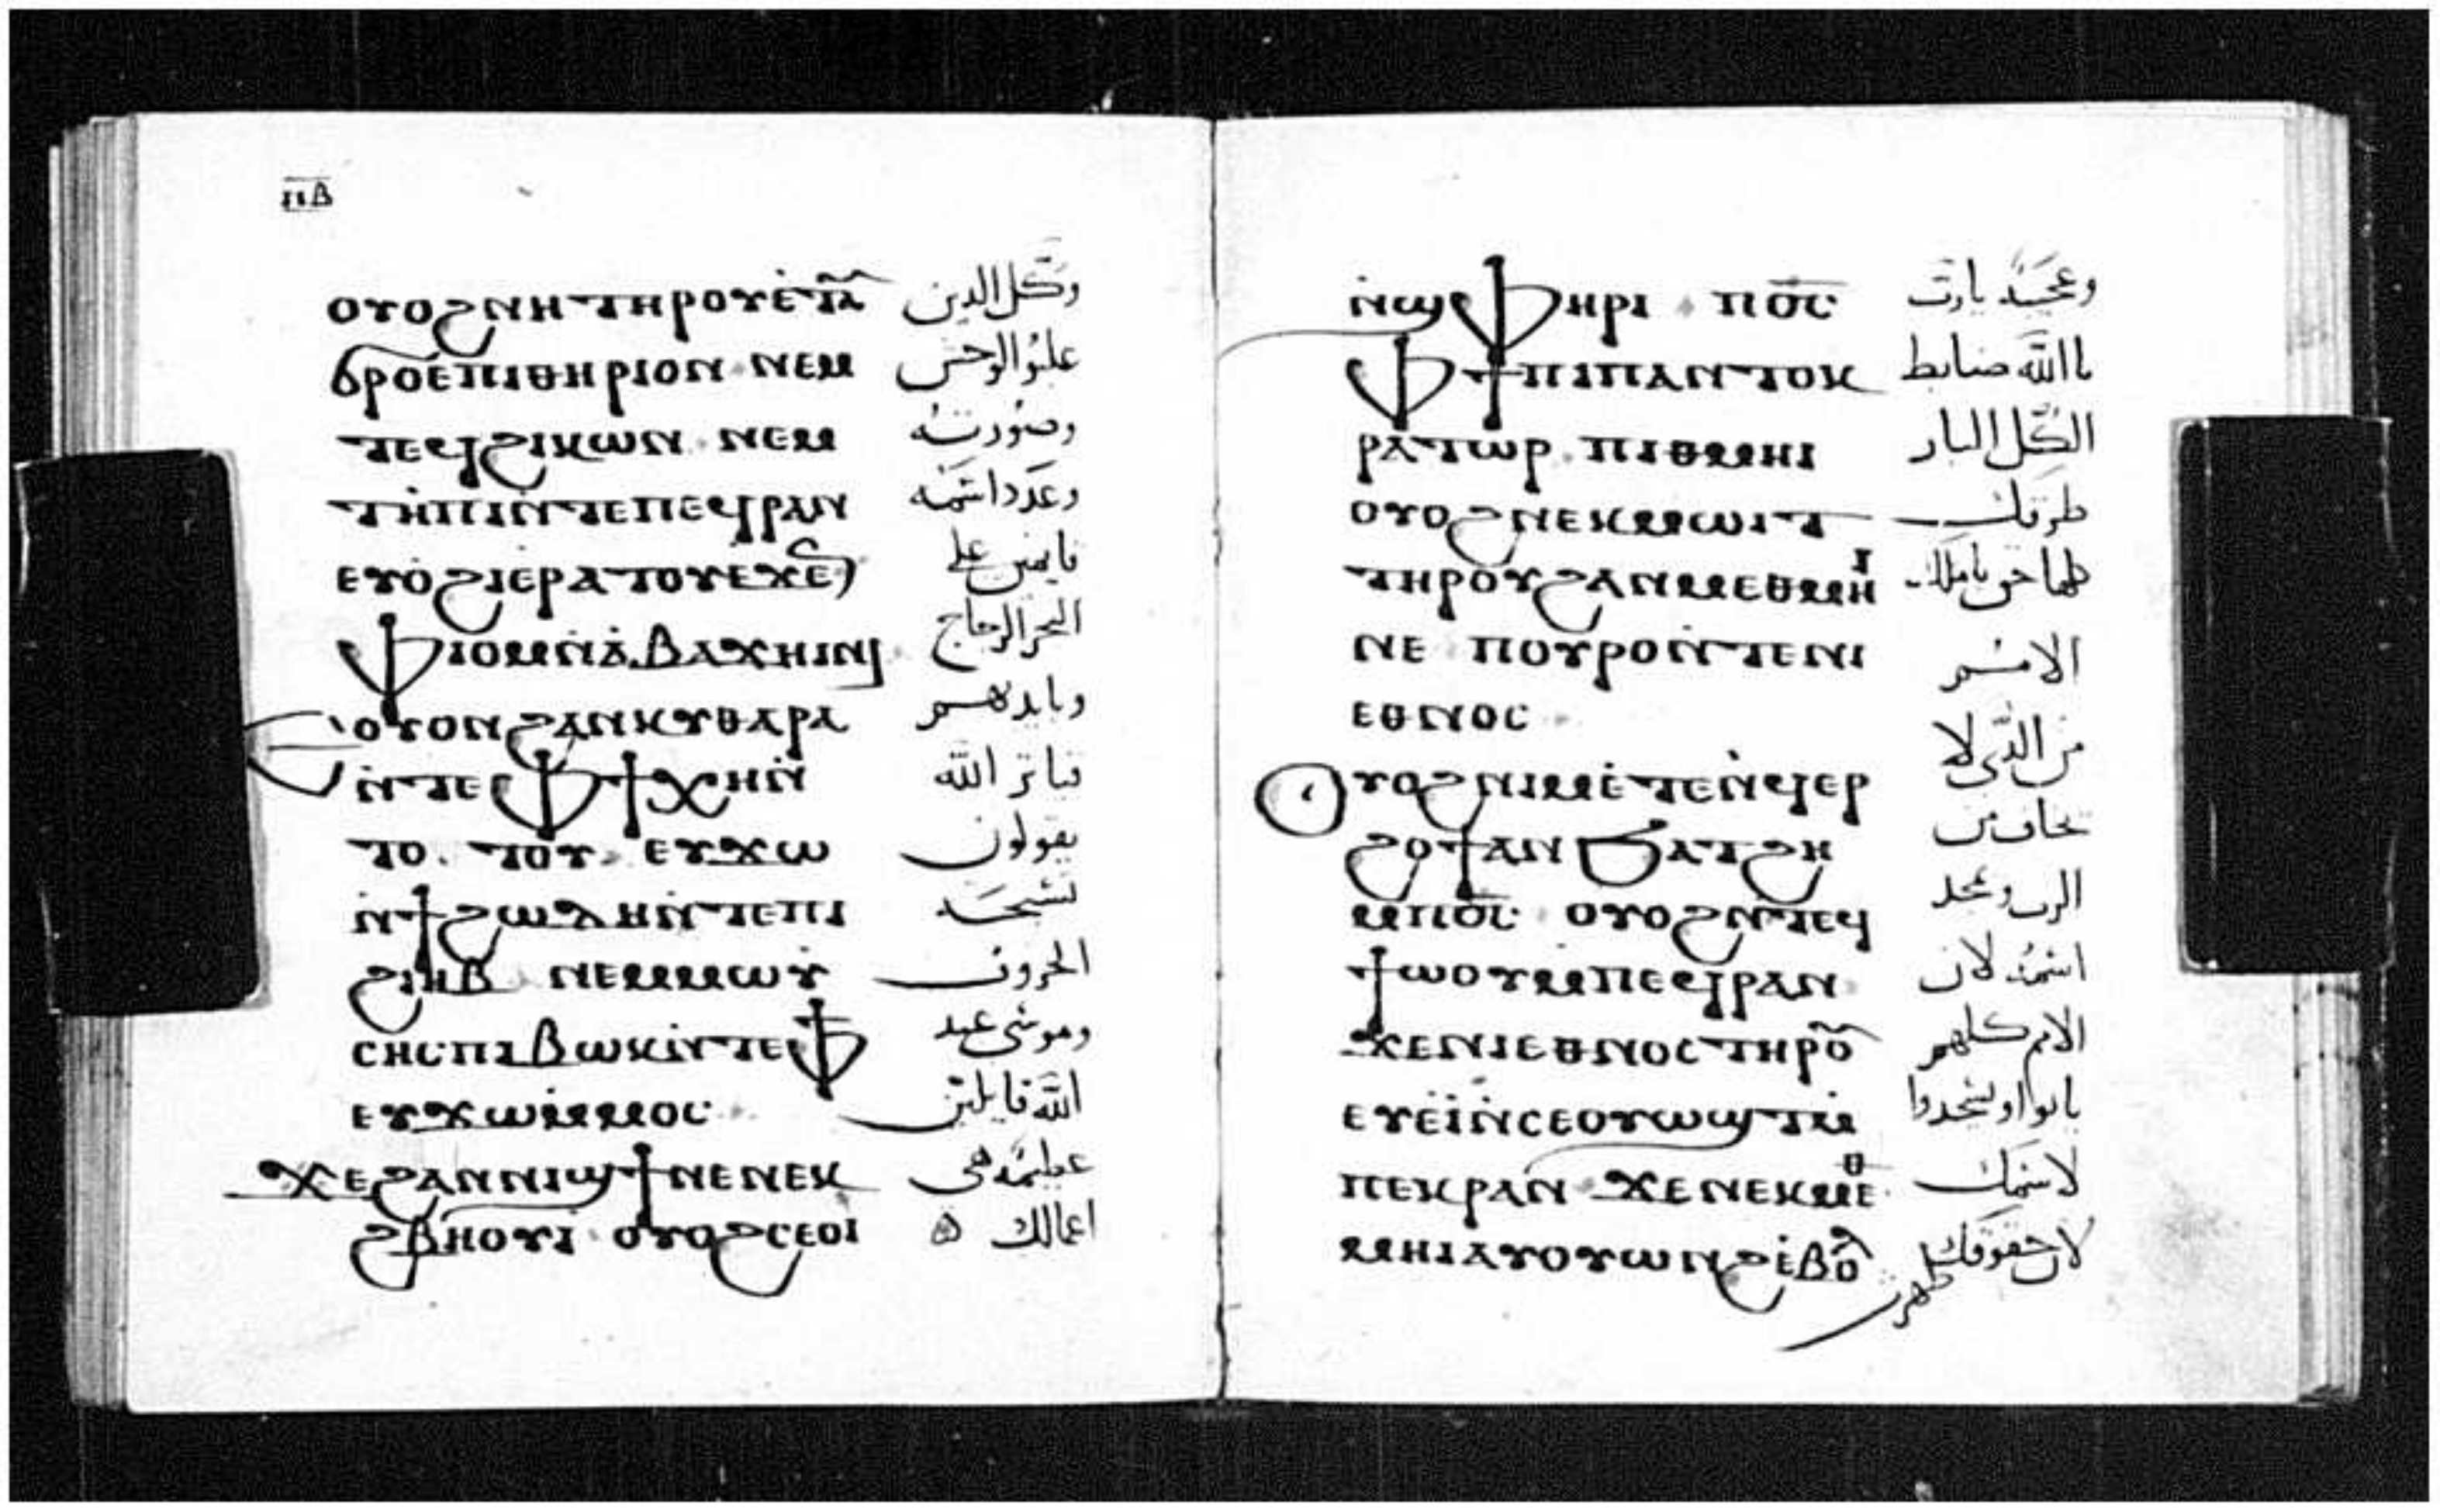 ⲡ̅ⲃ̅
ⲟⲩⲟϩ ⲛⲏ ⲧⲏⲣⲟⲩ ⲉ̀ⲧⲁ̅ وكل الدين
ϭⲣⲟ ⲉⲡⲓⲑⲏⲣⲓⲟⲛ ⲛⲉⲙ غلبوا الوحش
ⲧⲉϥϩⲓⲕⲱⲛ ⲛⲉⲙ وصورته
ⲧⲏ̀ⲡⲓ ⲛ̀ⲧⲉ ⲡⲉϥⲣⲁⲛ وعدد اسمه
ⲉⲩⲟ̀ϩⲓ ⲉⲣⲁⲧⲟⲩ ⲉϫⲉ̅ قايمين على
ⲫⲓⲟⲙ ⲛ̀ⲁ̀ⲃⲁϫⲏⲓⲛⲓ البحر الزجاج
ⲉⲟⲩⲟⲛ ϩⲁⲛⲕⲩⲑⲁⲣⲁ وبايديهم
ⲛ̀ⲧⲉ ⲫϯ ⲭⲏ ⲛ̀ قياتر الله
ⲧⲟⲧⲟⲩ ⲉⲩϫⲱ يقولون
ⲛ̀ϯϩⲱⲇⲏ ⲛ̀ⲧⲉ ⲡⲓ تسبحة
ϩⲓⲏⲃ ⲛⲉⲙ ⲙⲱⲩ̀ الخروف
ⲥⲏⲥ ⲡⲓⲃⲱⲕ ⲛ̀ⲧⲉ ⲫϯ وموسى عبد
ⲉⲩϫⲱ ⲙ̀ⲙⲟⲥ الله قايلين
ϫⲉ ϩⲁⲛⲛⲓϣϯ ⲛⲉ ⲛⲉⲕ عظيمة هي
ϩⲃⲏⲟⲩⲓ ⲟⲩⲟϩ ⲥⲉⲟⲓ اعمالك
ⲛ̀ϣⲫⲏⲣⲓ ⲡⲟ̅ⲥ̅ وعجيبة يارب
ⲫϯ ⲡⲓⲡⲁⲛⲧⲟⲕ يا الله ضابط
ⲣⲁⲧⲱⲣ ⲡⲓⲑⲙⲏⲓ الكل البار
ⲟⲩⲟϩ ⲛⲉⲕⲙⲱⲓⲧ طرقك
ⲧⲏⲣⲟⲩ ϩⲁⲛⲙⲉⲑⲙⲏⲓ كلها حق يا ملك
ⲛⲉ ⲡⲟⲩⲣⲟ ⲛ̀ⲧⲉ ⲛⲓ الامم
ⲉⲑⲛⲟⲥ من الذي لا
ⲟⲩⲟϩ ⲛⲓⲙ ⲉ̀ⲧⲉⲛ̀ϥⲉⲣ يخاف من
ϩⲟϯ ⲁⲛ ϧⲁⲧϩⲏ الرب ويمجد
ⲙⲡⲟ̅ⲥ̅ ⲟⲩⲟϩ ⲛⲧⲉϥ اسمه لان
ϯⲱⲟⲩ ⲙⲡⲉϥⲣⲁⲛ الامم كلهم
ϫⲉ ⲛⲓⲉⲑⲛⲟⲥ ⲧⲏⲣⲟ̅ ياتوا وليسجدوا
ⲉⲩⲉⲓ̀ ⲛ̀ⲥⲉⲟⲩⲱϣⲧ ⲙ̀ لاسمك
ⲡⲉⲕⲣⲁⲛ ϫⲉ ⲛⲉⲕⲙⲉⲑ لان حقوقك
ⲙⲏⲓ ⲁⲩⲟⲩⲱⲛϩ ⲉ̀ⲃⲟⲗ ظهرت